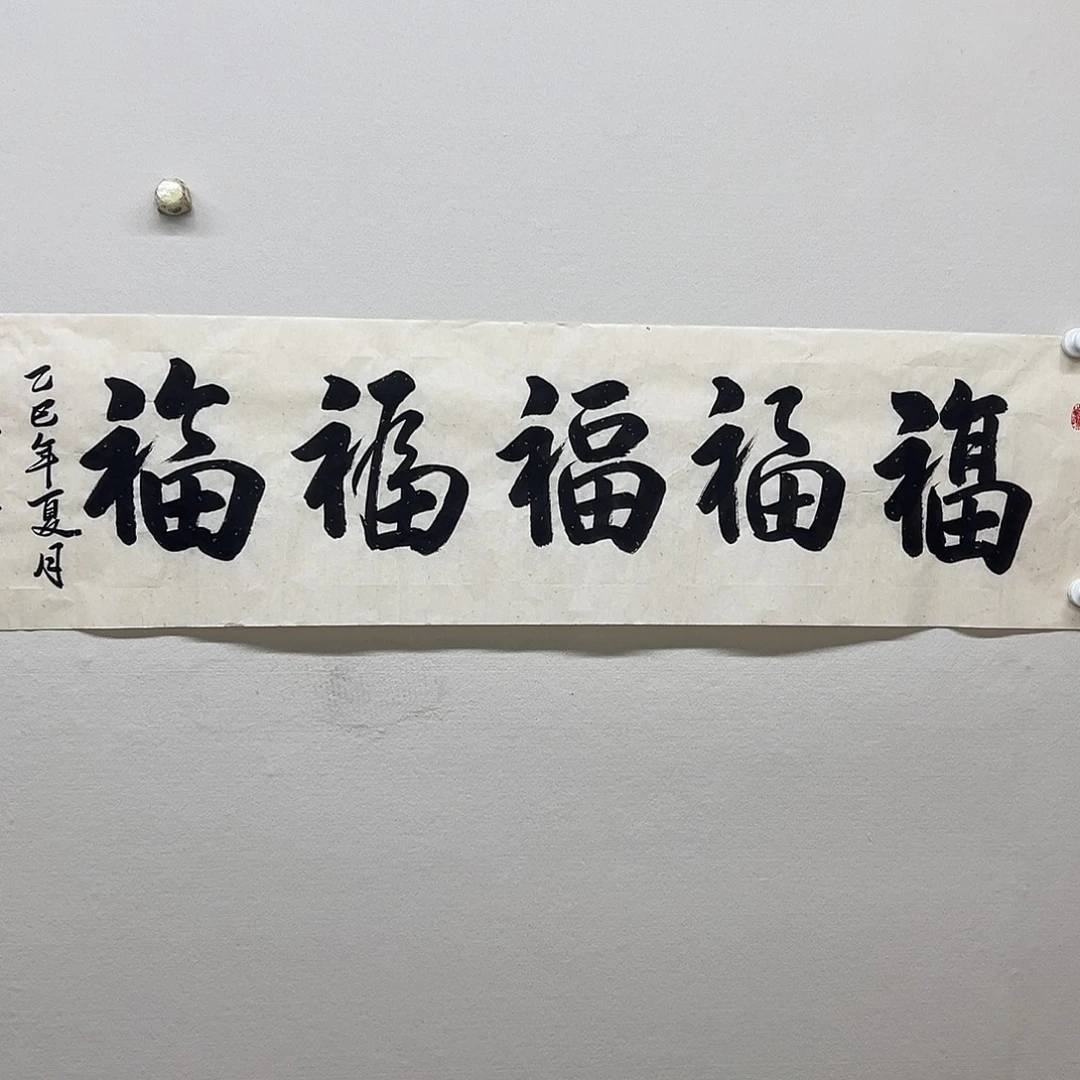 福福福福福
乙巳年夏月